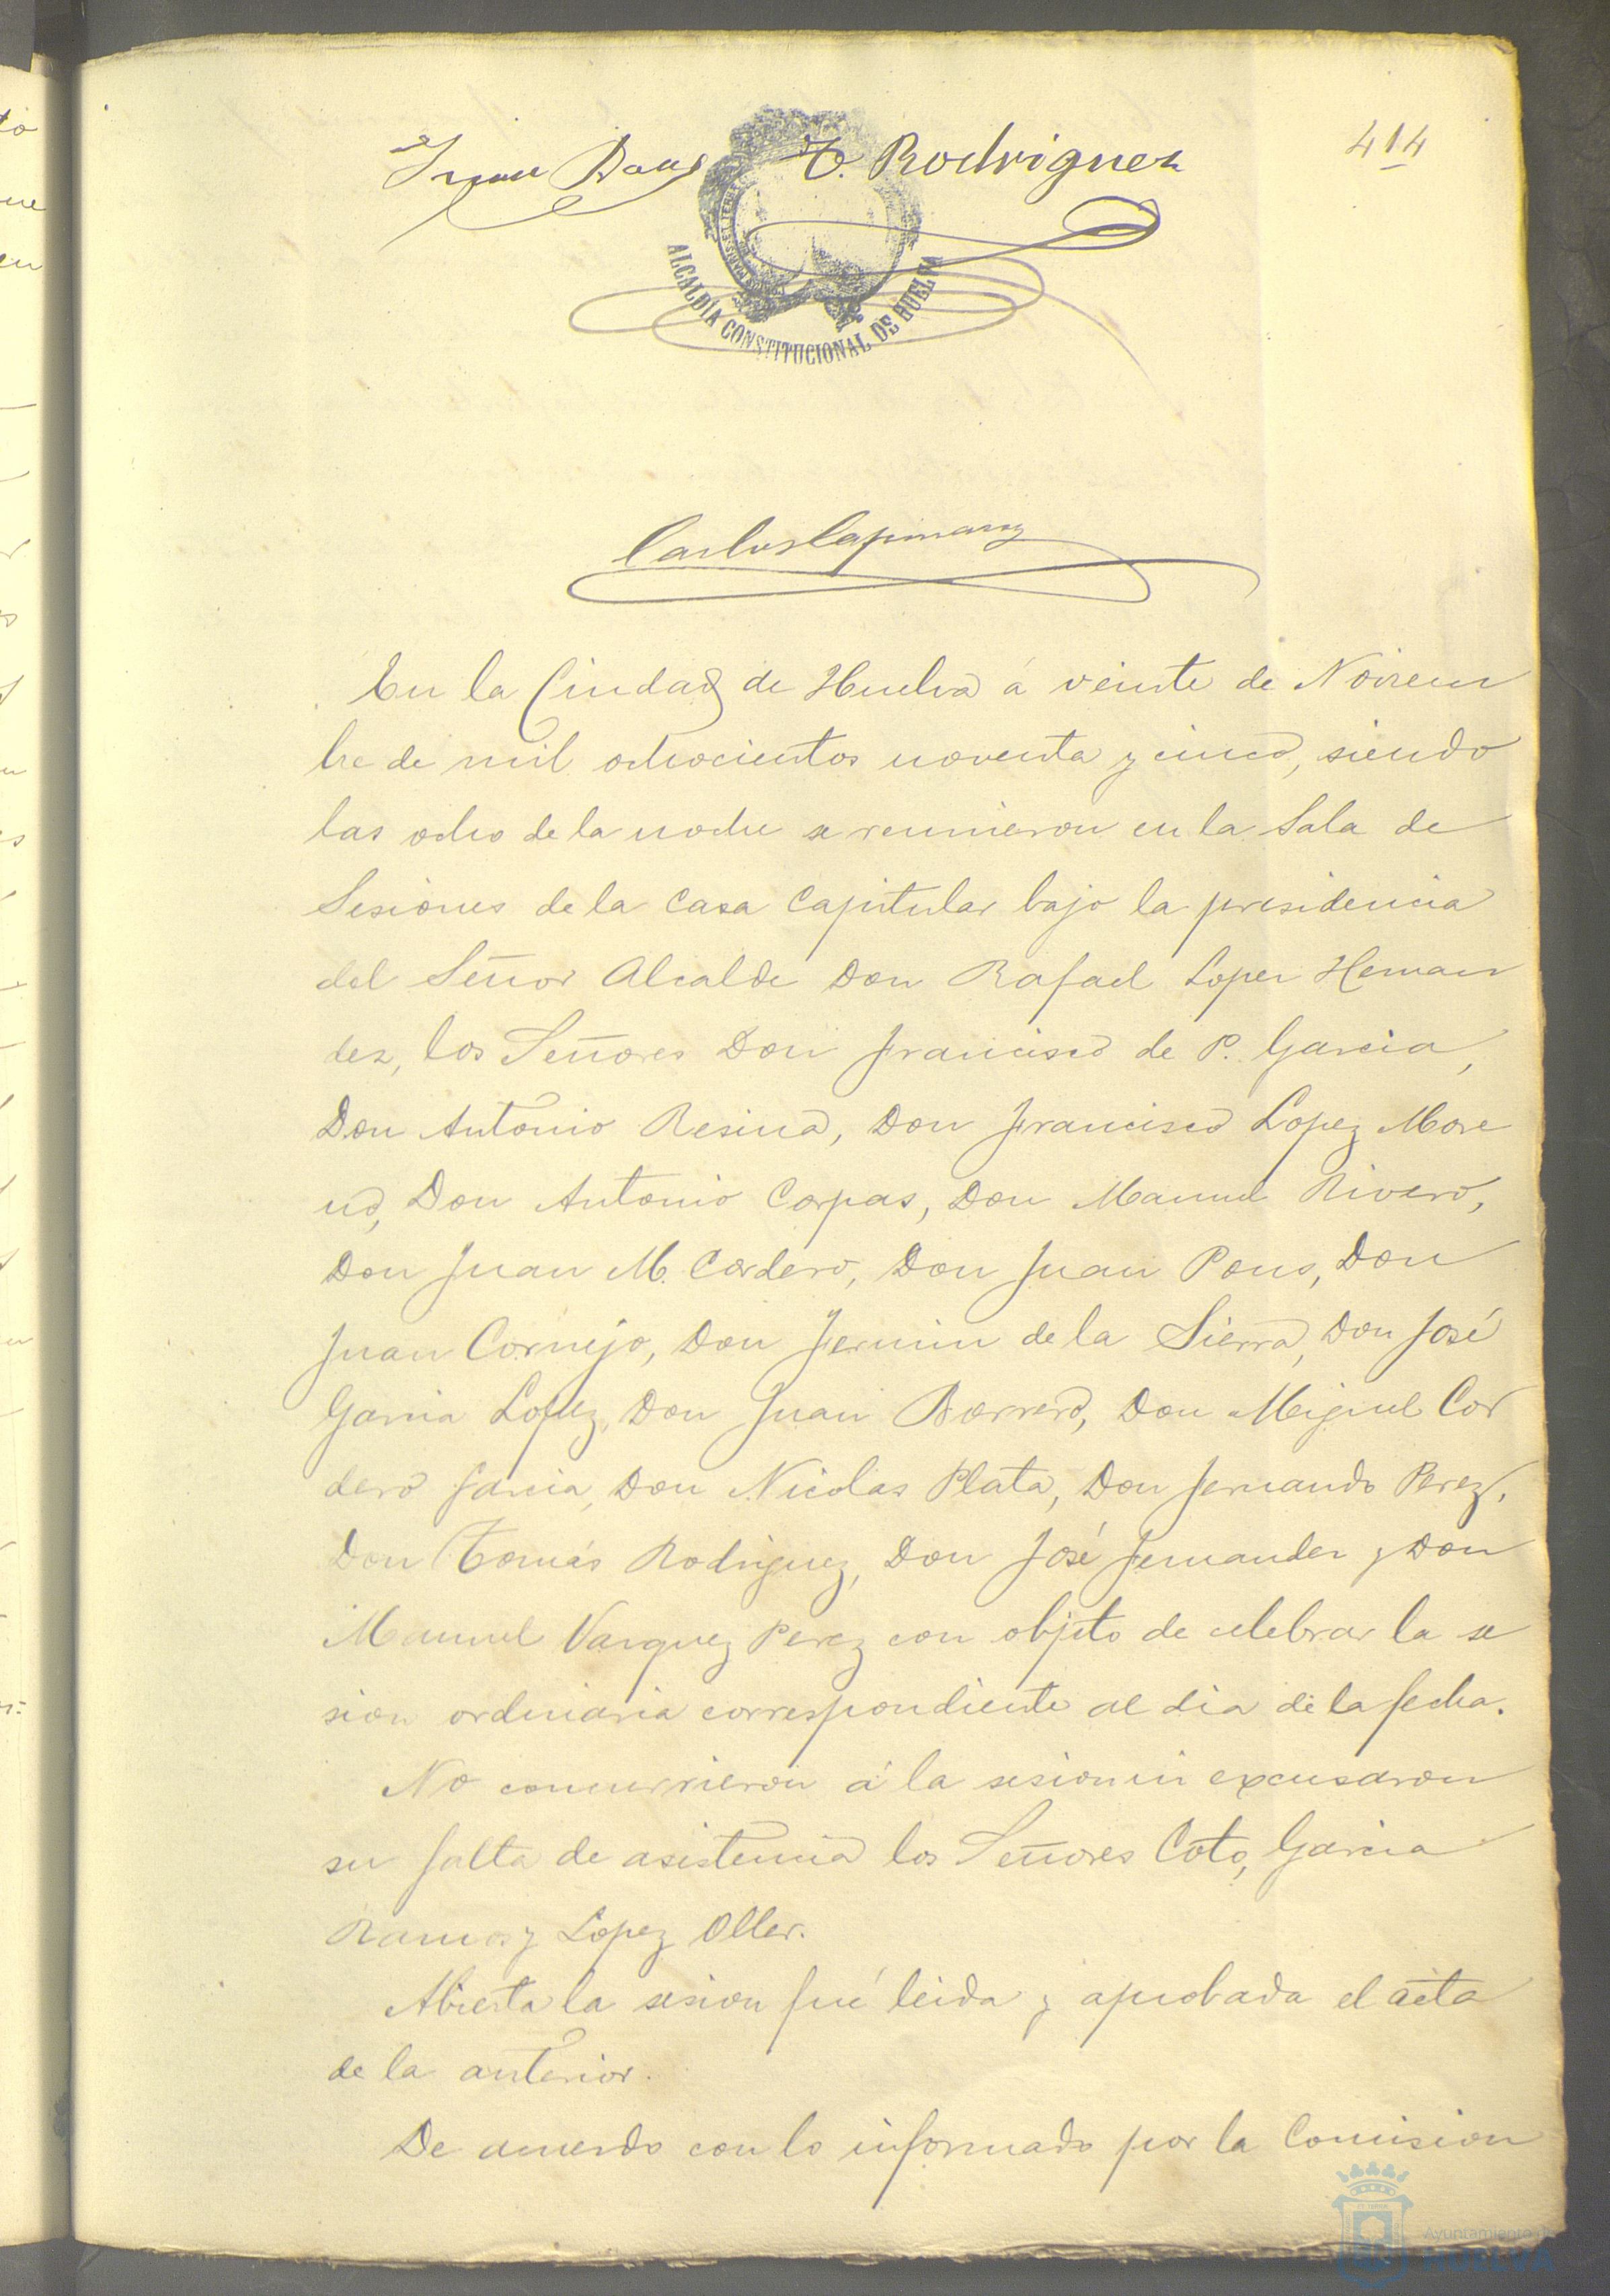 414
Juan
T. Rodriguez
ALCALDÍA CONSTITUCIONAL DE HUELVA
Carlos
En la Ciudad de Huelva á veinte de Noviem
bre de mil ochocientos noventa y cinco, siendo
las ocho de la noche se reunieron en la Sala de
Sesiones de la Casa Capitular bajo la presidencia
del Señor Alcalde Don Rafael Lopez Hernan
dez, los Señores Don Francisco de P. Garcia,
Don Antonio Resina, Don Francisco Lopez More
no, Don Antonio Corpas, Don Manuel Rivero,
Don Juan M. Cordero, Don Juan Pons, Don
Juan Cornejo, Don Fermin de la Sierra, Don José
Garcia Lopez, Don Juan Borrero, Don Miguel Cor
dero Garcia, Don Nicolas Plata, Don Fernando Perez,
Don Tomás Rodriguez, Don José Fernandez y Don
Manuel Vazquez Perez con objeto de celebrar la se
sion ordinaria correspondiente al dia de la fecha.
No concurrieron á la sesion ni excusaron
su falta de asistencia los Señores Coto, Garcia
Ramos y Lopez Oller.
Abierta la sesion fué leida y aprobada el acta
de la anterior.
De acuerdo con lo informado por la Comision
Ayuntamiento de
HUELVA